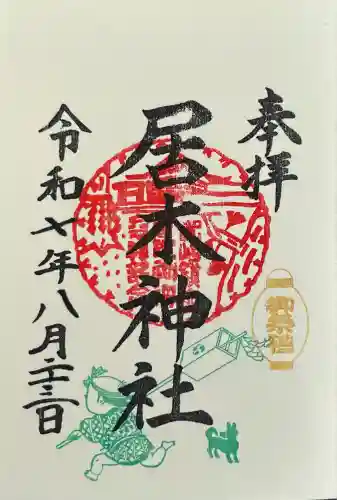 奉拝
居木神社
令和七年八月二十三日
御祭禮